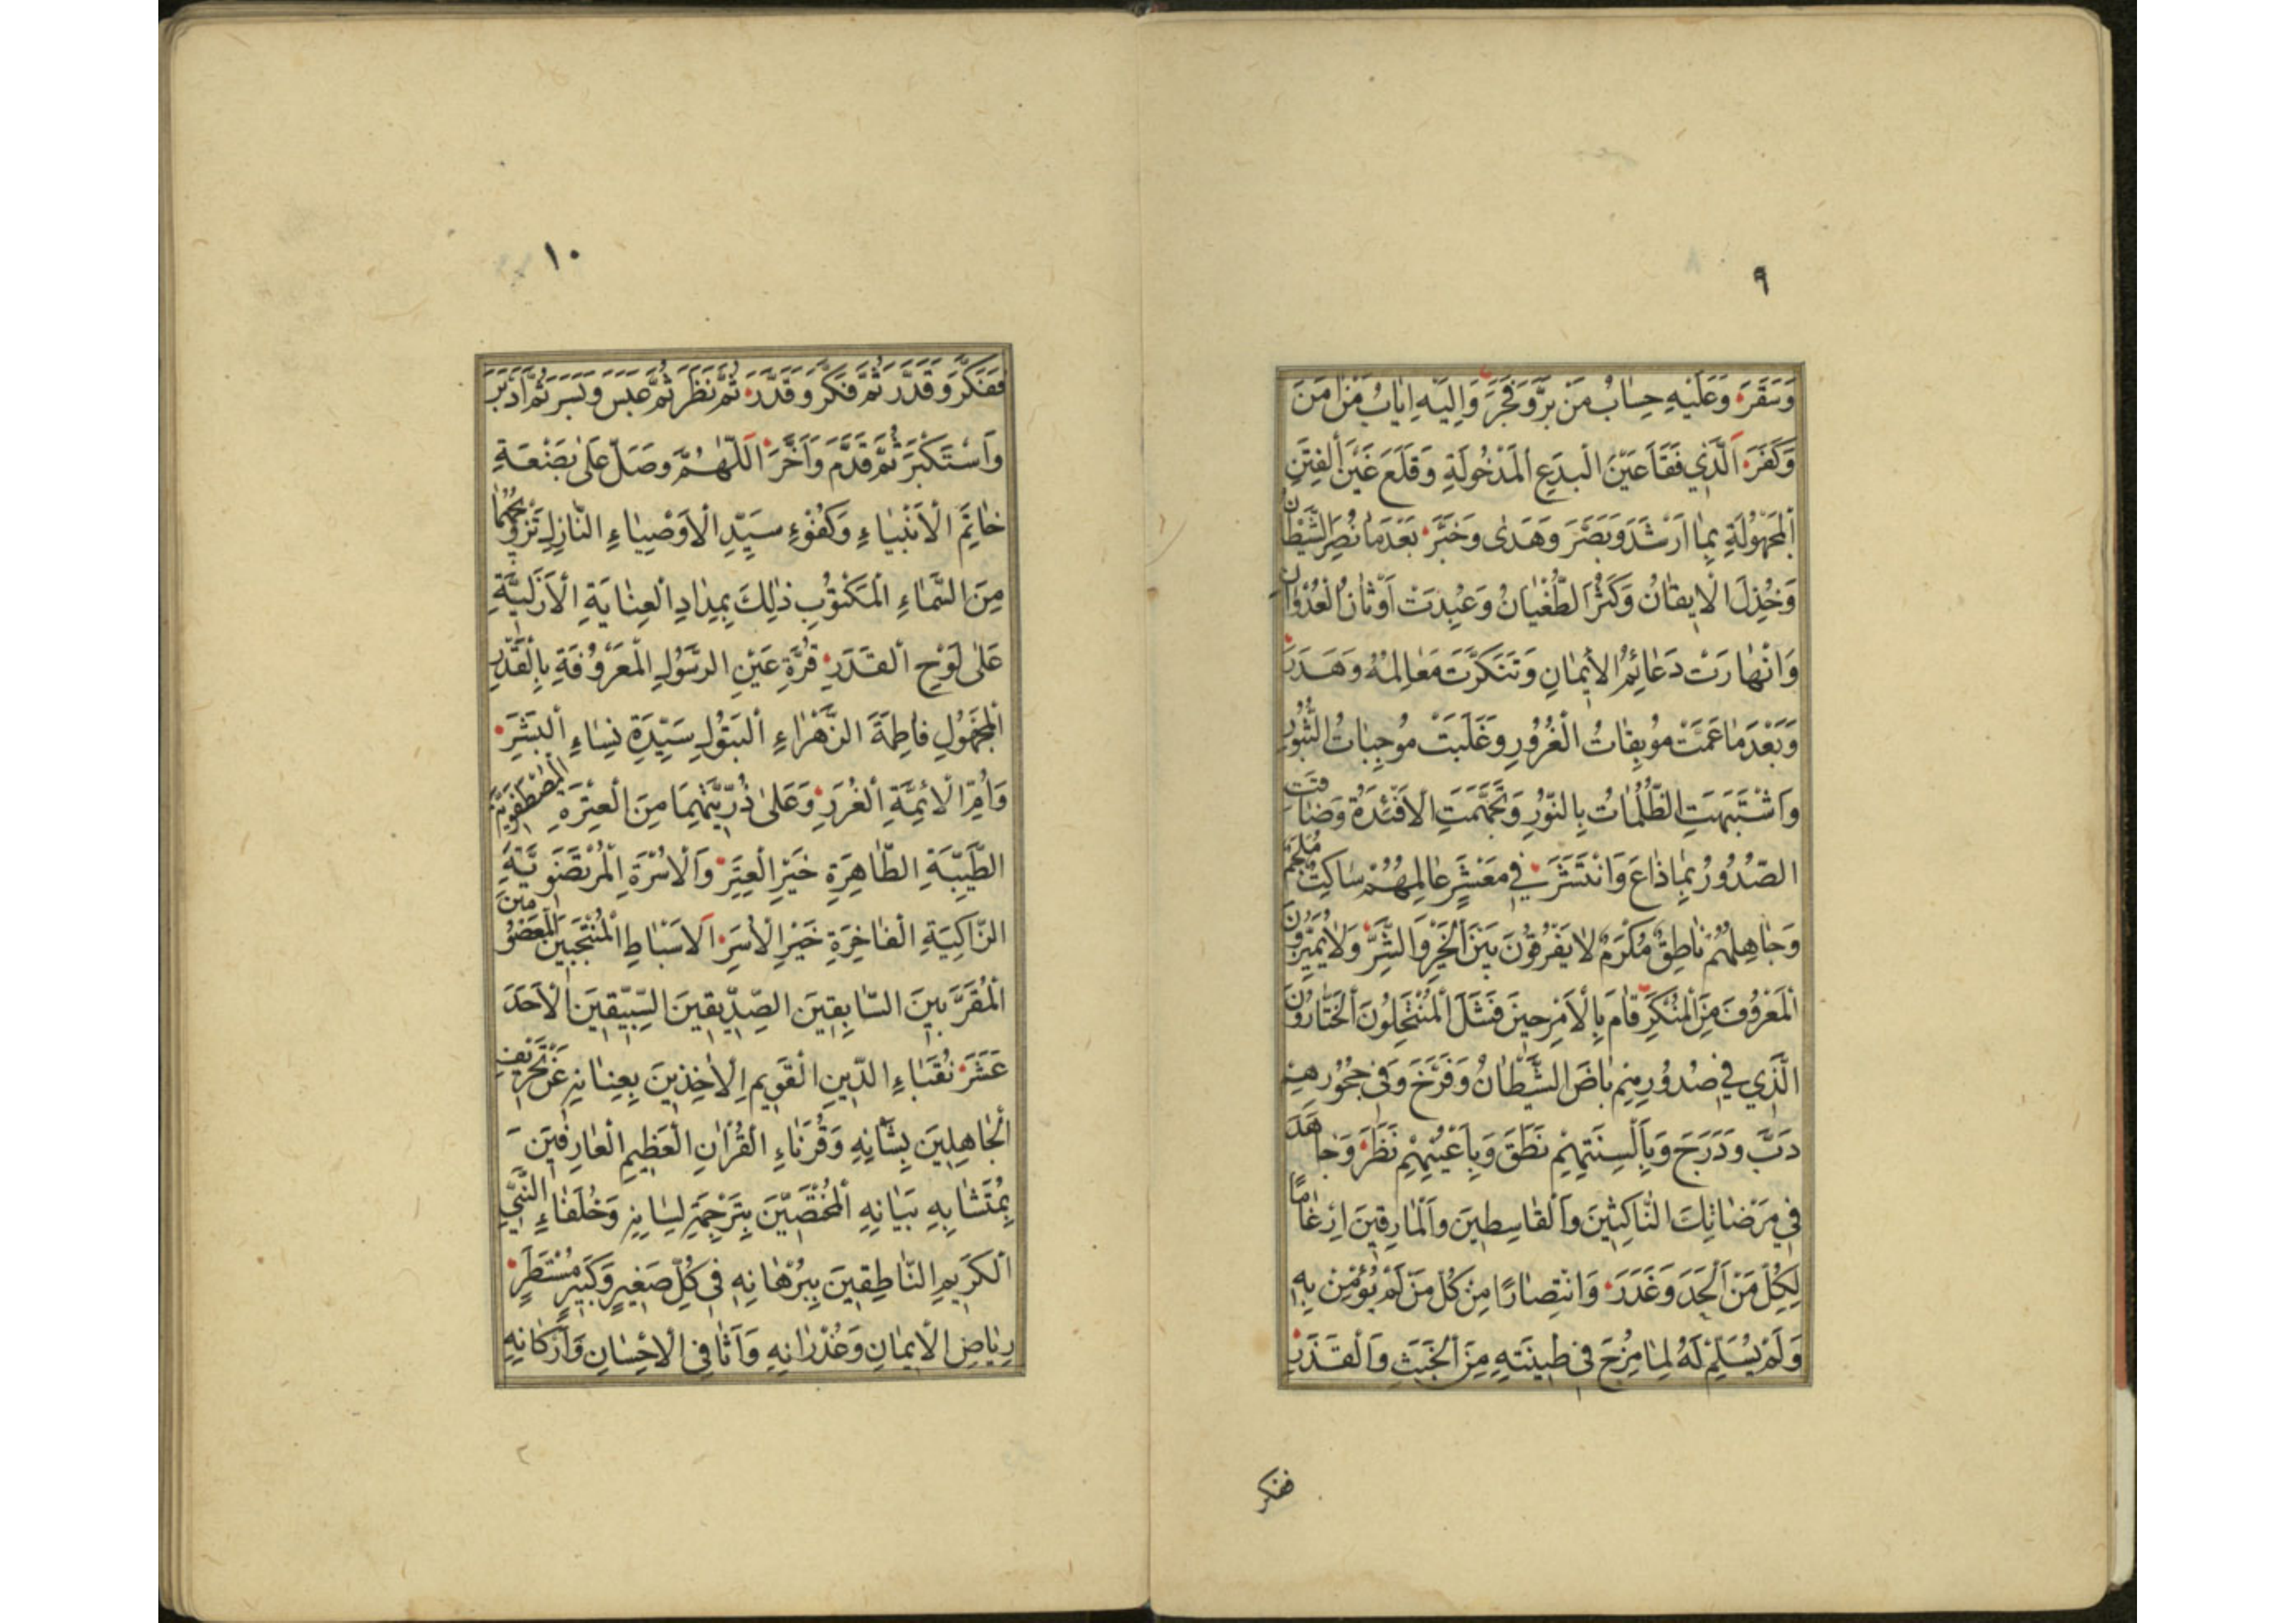 ٩
وَسَقَرَ وَعَلَيْهِ حِسٰابُ مَنْ بَرَّ وَفَجَرَ وَاِلَيْهِ اِيٰابُ مَنْ اٰمَنَ
وَكَفَرَ اَلَّذِي فَقَاَ عَيْنَ الْبِدَعِ الْمَدْخُولَةِ وَقَلَعَ عَيْنَ الْفِتَنِ
الْمَجْهُولَةِ بِمٰا اَرْشَدَ وَبَصَّرَ وَهَدٰى وَخَبَّرَ بَعْدَمٰا نُصِرَ الشَّيْطٰانُ
وَخُذِلَ الْاِيقٰانُ وَكَثُرَ الطُّغْيٰانُ وَعُبِدَتْ اَوْثٰانُ الْعُدْوٰانِ
وَانْهٰارَتْ دَعٰائِمُ الْاِيمٰانِ وَتَنَكَّرَتْ مَعٰالِمُهُ وَهَدَرَ
وَبَعْدَمٰا عَمَّتْ مُوبِقٰاتُ الْغُرُورِ وَغَلَبَتْ مُوجِبٰاتُ الثُّبُورِ
وَاشْتَبَهَتِ الظُّلُمٰاتُ بِالنُّورِ وَتَجَهَّمَتِ الْاَفْئِدَةُ وَضٰاقَتِ
الصُّدُورُ بِمٰا ذٰاعَ وَانْتَشَرَ فِي مَعْشَرٍ عٰالِمُهُمْ سٰاكِتٌ مُلْجَمٌ
وَجٰاهِلُهُمْ نٰاطِقٌ مُكْرَمٌ لٰا يَفْرُقُونَ بَيْنَ الْخَيْرِ وَالشَّرِّ وَلٰا يُمَيِّزُونَ
الْمَعْرُوفَ مِنَ الْمُنْكَرِ قٰامَ بِالْاَمْرِ حِينَ فَشَلَ الْمُنْتَحِلُونَ الْخَتّٰارُونَ
الَّذِي فِي صُدُورِهِمْ بٰاضَ الشَّيْطٰانُ وَفَرَّخَ وَفِي حُجُورِهِمْ
دَبَّ وَدَرَجَ وَبِاَلْسِنَتِهِمْ نَطَقَ وَبِاَعْيُنِهِمْ نَظَرَ وَجٰاهَدَ
فِي مَرْضٰاتِكَ النّٰاكِثِينَ وَالْقٰاسِطِينَ وَالْمٰارِقِينَ اِرْغٰامًا
لِكُلِّ مَنْ اَلْحَدَ وَغَدَرَ وَانْتِصٰارًا مِنْ كُلِّ مَنْ لَمْ يُؤْمِنْ بِهِ
وَلَمْ يُسَلِّمْ لَهُ لِمٰا مُزِجَ فِي طِينَتِهِ مِنَ الْخَبَثِ وَالْقَذَرِ
ففكر
١٠
فَفَكَّرَ وَقَدَّرَ ثُمَّ فَكَّرَ وَقَدَّرَ ثُمَّ نَظَرَ ثُمَّ عَبَسَ وَبَسَرَ ثُمَّ اَدْبَرَ
وَاسْتَكْبَرَ ثُمَّ قَدَّمَ وَاَخَّرَ اَللّٰهُمَّ وَصَلِّ عَلٰى بَضْعَةِ
خٰاتَمِ الْاَنْبِيٰاءِ وَكُفْوِءِ سَيِّدِ الْاَوْصِيٰاءِ النّٰازِلِ تَزْوِيجُهُمٰا
مِنَ السَّمٰاءِ الْمَكْتُوبِ ذٰلِكَ بِمِدٰادِ الْعِنٰايَةِ الْاَزَلِيَّةِ
عَلٰى لَوْحِ الْقَدَرِ قُرَّةِ عَيْنِ الرَّسُولِ الْمَعْرُوفَةِ بِالْقَدْرِ
الْمَجْهُولِ فٰاطِمَةَ الزَّهْرٰاءِ الْبَتُولِ سَيِّدَةِ نِسٰاءِ الْبَشَرِ
وَاُمِّ الْاَئِمَّةِ الْغُرَرِ وَعَلٰى ذُرِّيَّتِهِمَا مِنَ الْعِتْرَةِ الْمُصْطَفَوِيَّةِ
الطَّيِّبَةِ الطّٰاهِرَةِ خَيْرِ الْعِتَرِ وَالْاُسْرَةِ الْمُرْتَضَوِيَّةِ
الزّٰاكِيَةِ الْفٰاخِرَةِ خَيْرِ الْاُسَرِ اَلْاَسْبٰاطِ الْمُنْتَجَبِينَ الْمَعْصُومِينَ
الْمُقَرَّبِينَ السّٰابِقِينَ الصِّدِّيقِينَ السِّبِّيقِينَ الْاَحَدَ
عَشَرَ نُقَبٰاءِ الدِّينِ الْقَوِيمِ الْاٰخِذِينَ بِعِنٰانِهِ عَنْ تَحْرِيفِ
الْجٰاهِلِينَ بِشَأْنِهِ وَقُرَنٰاءِ الْقُرْاٰنِ الْعَظِيمِ الْعٰارِفِينَ
بِمُتَشٰابِهِ بَيٰانِهِ الْمُخْتَصِّينَ بِتَرْجِمَةِ لِسٰانِهِ وَخُلَفٰاءِ النَّبِيِّ
الْكَرِيمِ النّٰاطِقِينَ بِبُرْهٰانِهِ فِي كُلِّ صَغِيرٍ وَكَبِيرٍ مُسْتَطَرٍ
رِيٰاضِ الْاِيمٰانِ وَغُدْرٰانِهِ وَاَثٰافِي الْاِحْسٰانِ وَاَرْكٰانِهِ